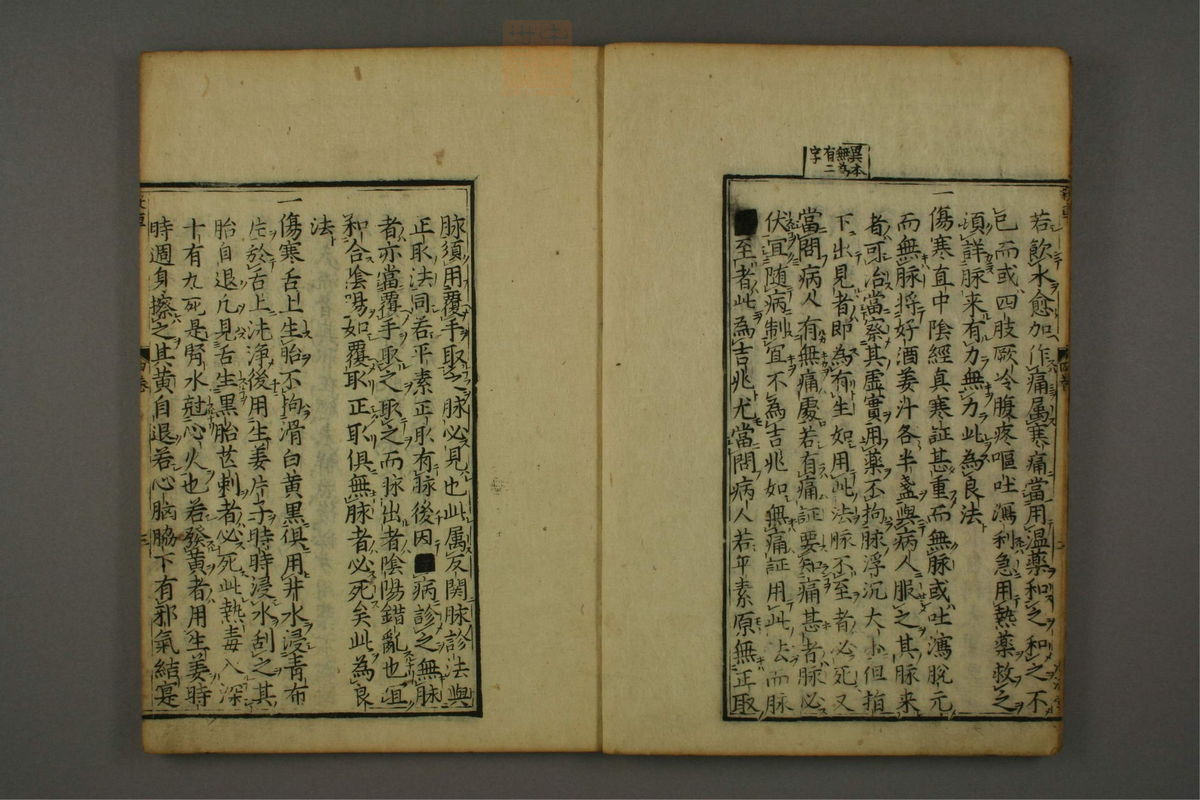 異本
無為
有二
字
若飲水愈加作痛属寒痛當用温藥和之和之不
已而或四肢厥冷腹疼嘔吐瀉利急用熱藥救之
須詳脉来有力無力此為良法
一傷寒直中陰經真寒証甚重而無脉或吐瀉脱元
而無脉将好酒姜汁各半盞與病人服之其脉来
者可治當察其虚實用藥不拘脉浮沉大小但指
下出見者即為有生如用此法脉不至者必死又
當問病人有無痛處若有痛証要知痛甚者脉必
伏宜随病制宜不為吉兆如無痛証用此法而脉
■至者此為吉兆尤當問病人若平素原無正取
脉須用覆手取之脉必見也此属反関脉診法與
正取法同若平素正取有脉後因■病診之無脉
者亦當覆手取之取之而脉出者陰陽錯亂也宜
和合陰陽如覆取正取俱無脉者必死矣此為良
法
一傷寒舌上生胎不拘滑白黄黒俱用井水浸青布
片於舌上洗浄後用生姜片子時時浸水刮之其
胎自退凡見舌生黒胎芒刺者必死此熱毒入深
十有九死是腎水尅心火也若發黄者用生姜時
時週身擦之其黄自退若心胸脇下有邪氣結寔